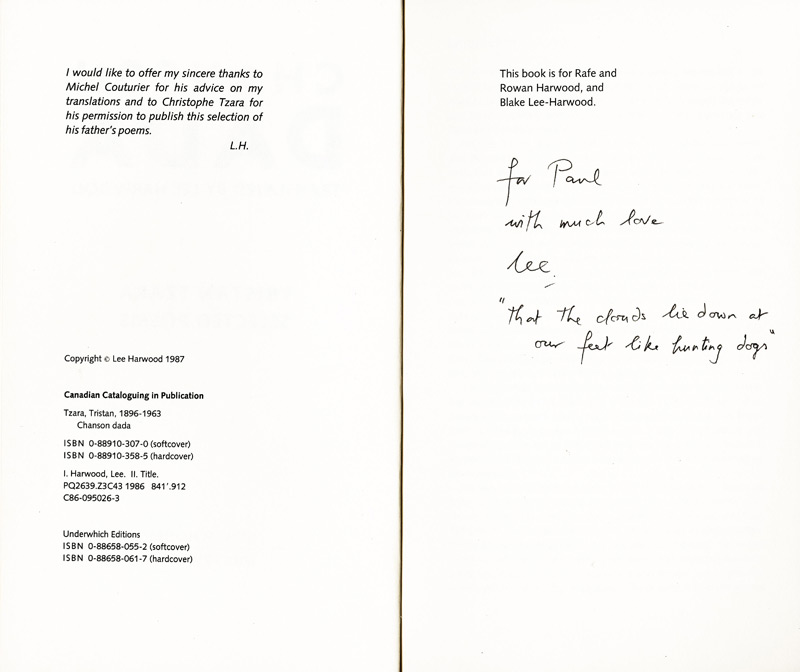 I would like to offer my sincere thanks to
Michel Couturier for his advice on my
translations and to Christophe Tzara for
his permission to publish this selection of
his father's poems.
L.H.
Copyright © Lee Harwood 1987
Canadian Cataloguing in Publication
Tzara, Tristan, 1896-1963
Chanson dada
ISBN 0-88910-307-0 (softcover)
ISBN 0-88910-358-5 (hardcover)
I. Harwood, Lee. II. Title.
PQ2639.Z3C43 1986 841'.912
C86-095026-3
Underwhich Editions
ISBN 0-88658-055-2 (softcover)
ISBN 0-88658-061-7 (hardcover)
This book is for Rafe and
Rowan Harwood, and
Blake Lee-Harwood.
for Paul
with much love
Lee.
"that the clouds lie down at
our feet like hunting dogs"